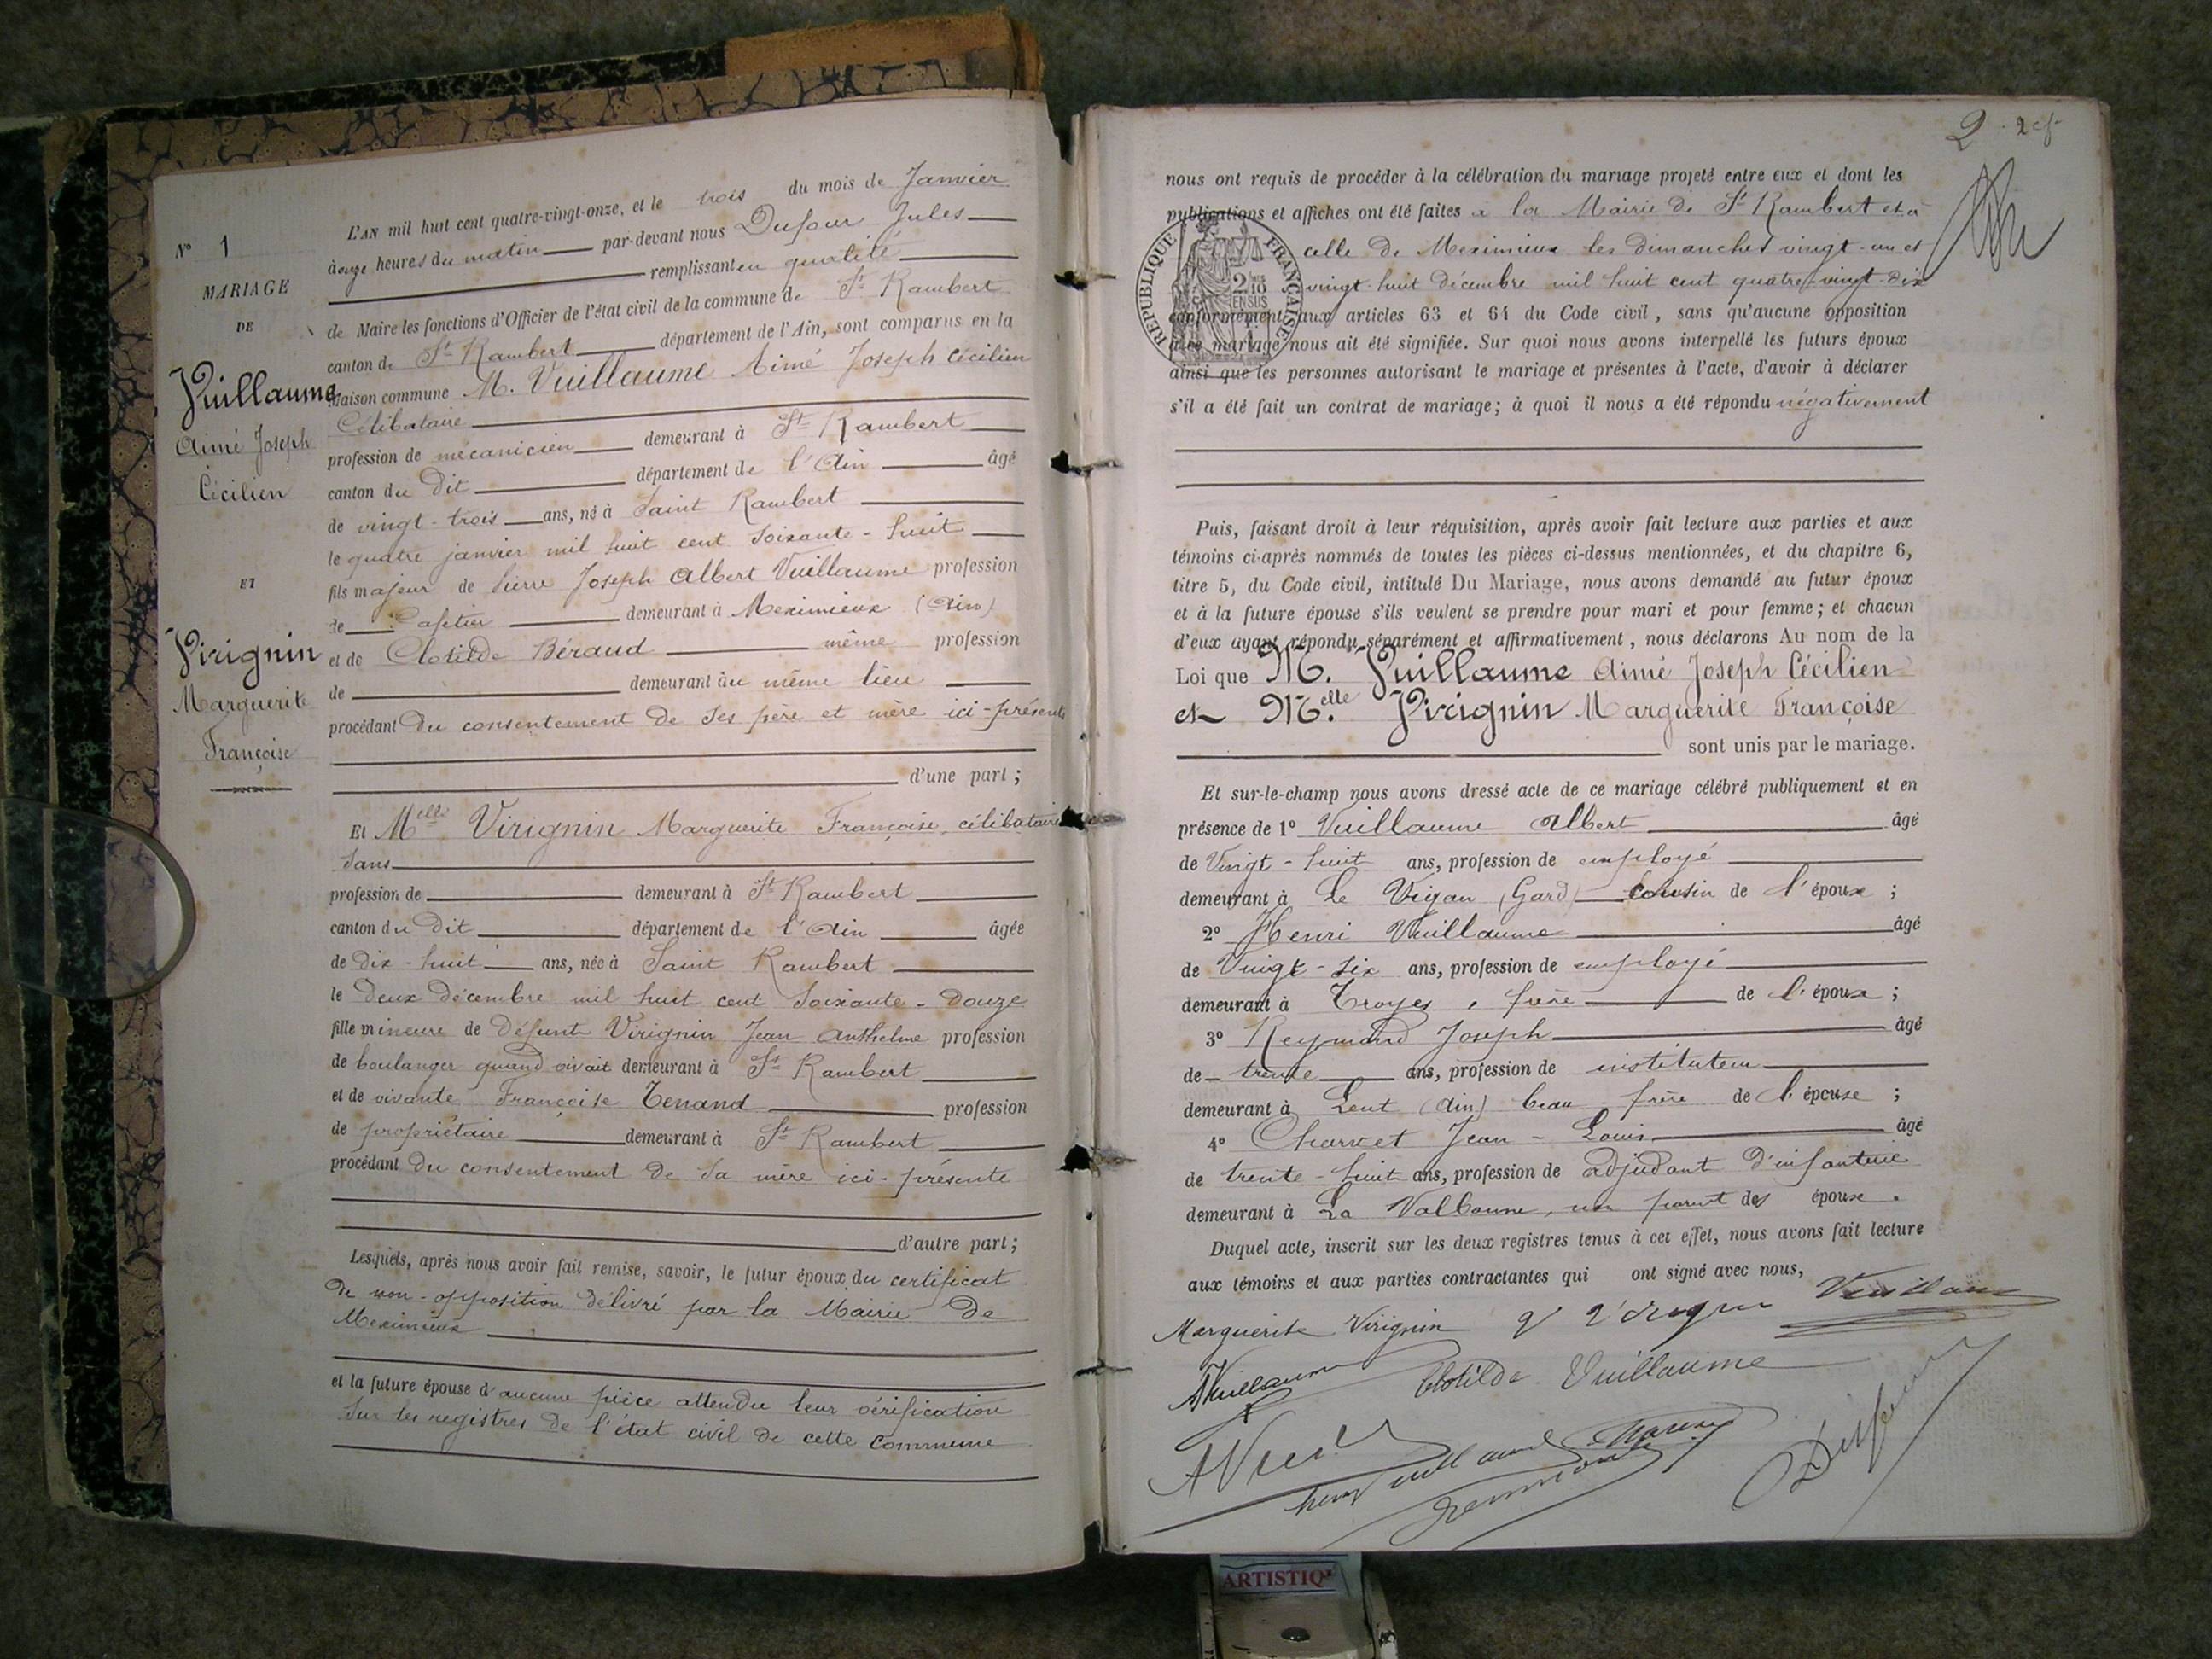 N° 1
MARIAGE
DE
Vuillaume
Aimé Joseph
Cécilien
ET
Virignin
Marguerite
Françoise
L'AN mil huit cent quatre-vingt-onze, et le trois du mois de Janvier
à onze heures du matin par-devant nous Dufour Jules
remplissant en qualité
de Maire les fonctions d'Officier de l'état civil de la commune de St Rambert
canton de St Rambert département de l'Ain, sont comparus en la
Maison commune M. Vuillaume Aimé Joseph Cécilien
Célibataire
profession de mécanicien demeurant à St Rambert
canton du dit département de l'Ain âgé
de vingt-trois ans, né à Saint Rambert
le quatre janvier mil huit cent soixante-huit
fils majeur de Pierre Joseph Albert Vuillaume profession
de Cafetier demeurant à Meximieux (Ain)
et de Clotilde Béraud même profession
de demeurant au même lieu
procédant du consentement de ses père et mère ici-présents
d'une part ;
Et Melle Virignin Marguerite Françoise, célibataire
sans
profession de demeurant à St Rambert
canton du dit département de l'Ain âgée
de dix-huit ans, née à Saint Rambert
le deux décembre mil huit cent soixante-douze
fille mineure de défunt Virignin Jean Anthelme profession
de boulanger quand vivait demeurant à St Rambert
et de vivante Françoise Tenand profession
de propriétaire demeurant à St Rambert
procédant du consentement de sa mère ici-présente
d'autre part ;
Lesquels, après nous avoir fait remise, savoir, le futur époux du certificat
de non-opposition délivré par la Mairie de
Meximieux
et la future épouse d'aucune pièce attendu leur vérification
sur les registres de l'état civil de cette commune
2
nous ont requis de procéder à la célébration du mariage projeté entre eux et dont les
publications et affiches ont été faites à la Mairie de St Rambert et à
celle de Meximieux les dimanches vingt-un et
vingt-huit décembre mil huit cent quatre-vingt-dix
conformément aux articles 63 et 64 du Code civil, sans qu'aucune opposition
à ce mariage nous ait été signifiée. Sur quoi nous avons interpellé les futurs époux
ainsi que les personnes autorisant le mariage et présentes à l'acte, d'avoir à déclarer
s'il a été fait un contrat de mariage ; à quoi il nous a été répondu négativement
REPUBLIQUE FRANÇAISE
Puis, faisant droit à leur réquisition, après avoir fait lecture aux parties et aux
témoins ci-après nommés de toutes les pièces ci-dessus mentionnées, et du chapitre 6,
titre 5, du Code civil, intitulé Du Mariage, nous avons demandé au futur époux
et à la future épouse s'ils veulent se prendre pour mari et pour femme ; et chacun
d'eux ayant répondu séparément et affirmativement, nous déclarons Au nom de la
Loi que M. Vuillaume Aimé Joseph Cécilien
et Melle Virignin Marguerite Françoise
sont unis par le mariage.
Et sur-le-champ nous avons dressé acte de ce mariage célébré publiquement et en
présence de 1° Vuillaume Albert âgé
de Vingt-huit ans, profession de employé
demeurant à Le Vigan (Gard) cousin de l'époux ;
2° Henri Vuillaume âgé
de Vingt-six ans, profession de employé
demeurant à Troyes, frère de l'époux ;
3° Reymond Joseph âgé
de trente ans, profession de instituteur
demeurant à Lent (Ain) beau-frère de l'épouse ;
4° Charvet Jean-Louis âgé
de trente-huit ans, profession de adjudant d'infanterie
demeurant à La Valbonne, un parent des époux.
Duquel acte, inscrit sur les deux registres tenus à cet effet, nous avons fait lecture
aux témoins et aux parties contractantes qui ont signé avec nous,
Marguerite Virignin Vuillaume
AVuillaume Clotilde Vuillaume
Henri Vuillaume Charvet
Reymond Dufour
ARTISTIQ